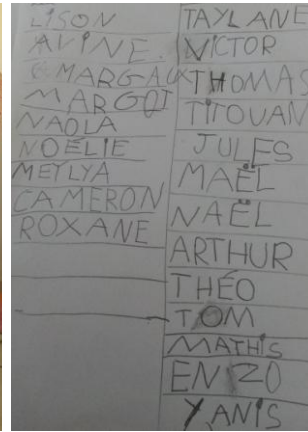 LISON
AVINE
MARGAUX
MARGOT
NAOLA
NOÉLIE
MEÏLYA
CAMERON
ROXANE
TAYLANE
VICTOR
THOMAS
TITOUAN
JULES
MAËL
NAËL
ARTHUR
THÉO
TOM
MATHIS
ENZO
YANIS